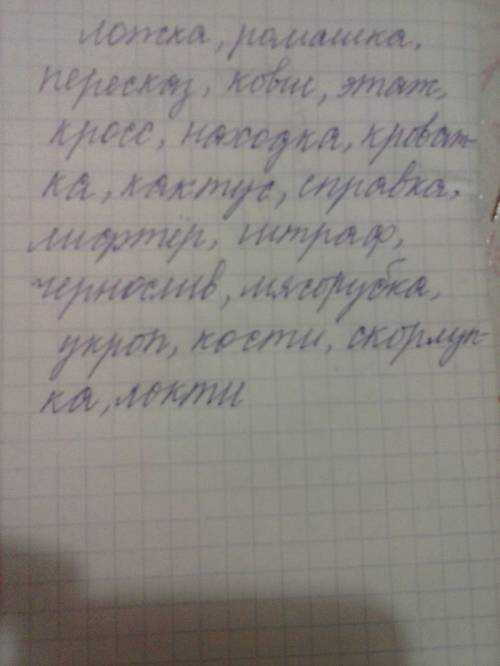 ложка, ромашка,
пересказ, ковш, этаж,
кросс, находка, кроват-
ка, кактус, справка,
лифтёр, штраф,
чернослив, мясорубка,
укроп, кости, скорлуп-
ка, локти